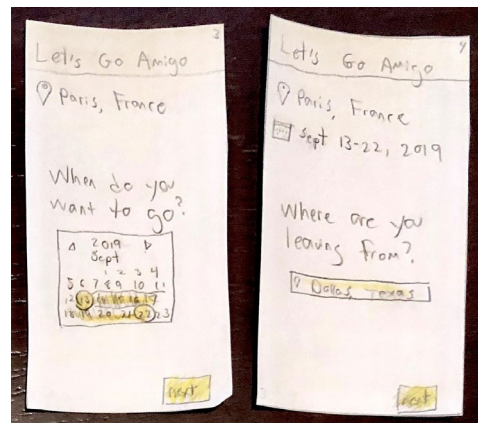 3
Let's Go Amigo
Paris, France
When do you
want to go?
2019
Sept
1 2 3 4
5 6 7 8 9 10 11
12 13 14 15 16 17
18 19 20 21 22 23
next
4
Let's Go Amigo
Paris, France
Sept 13-22, 2019
Where are you
leaving from?
Dallas, Texas
next